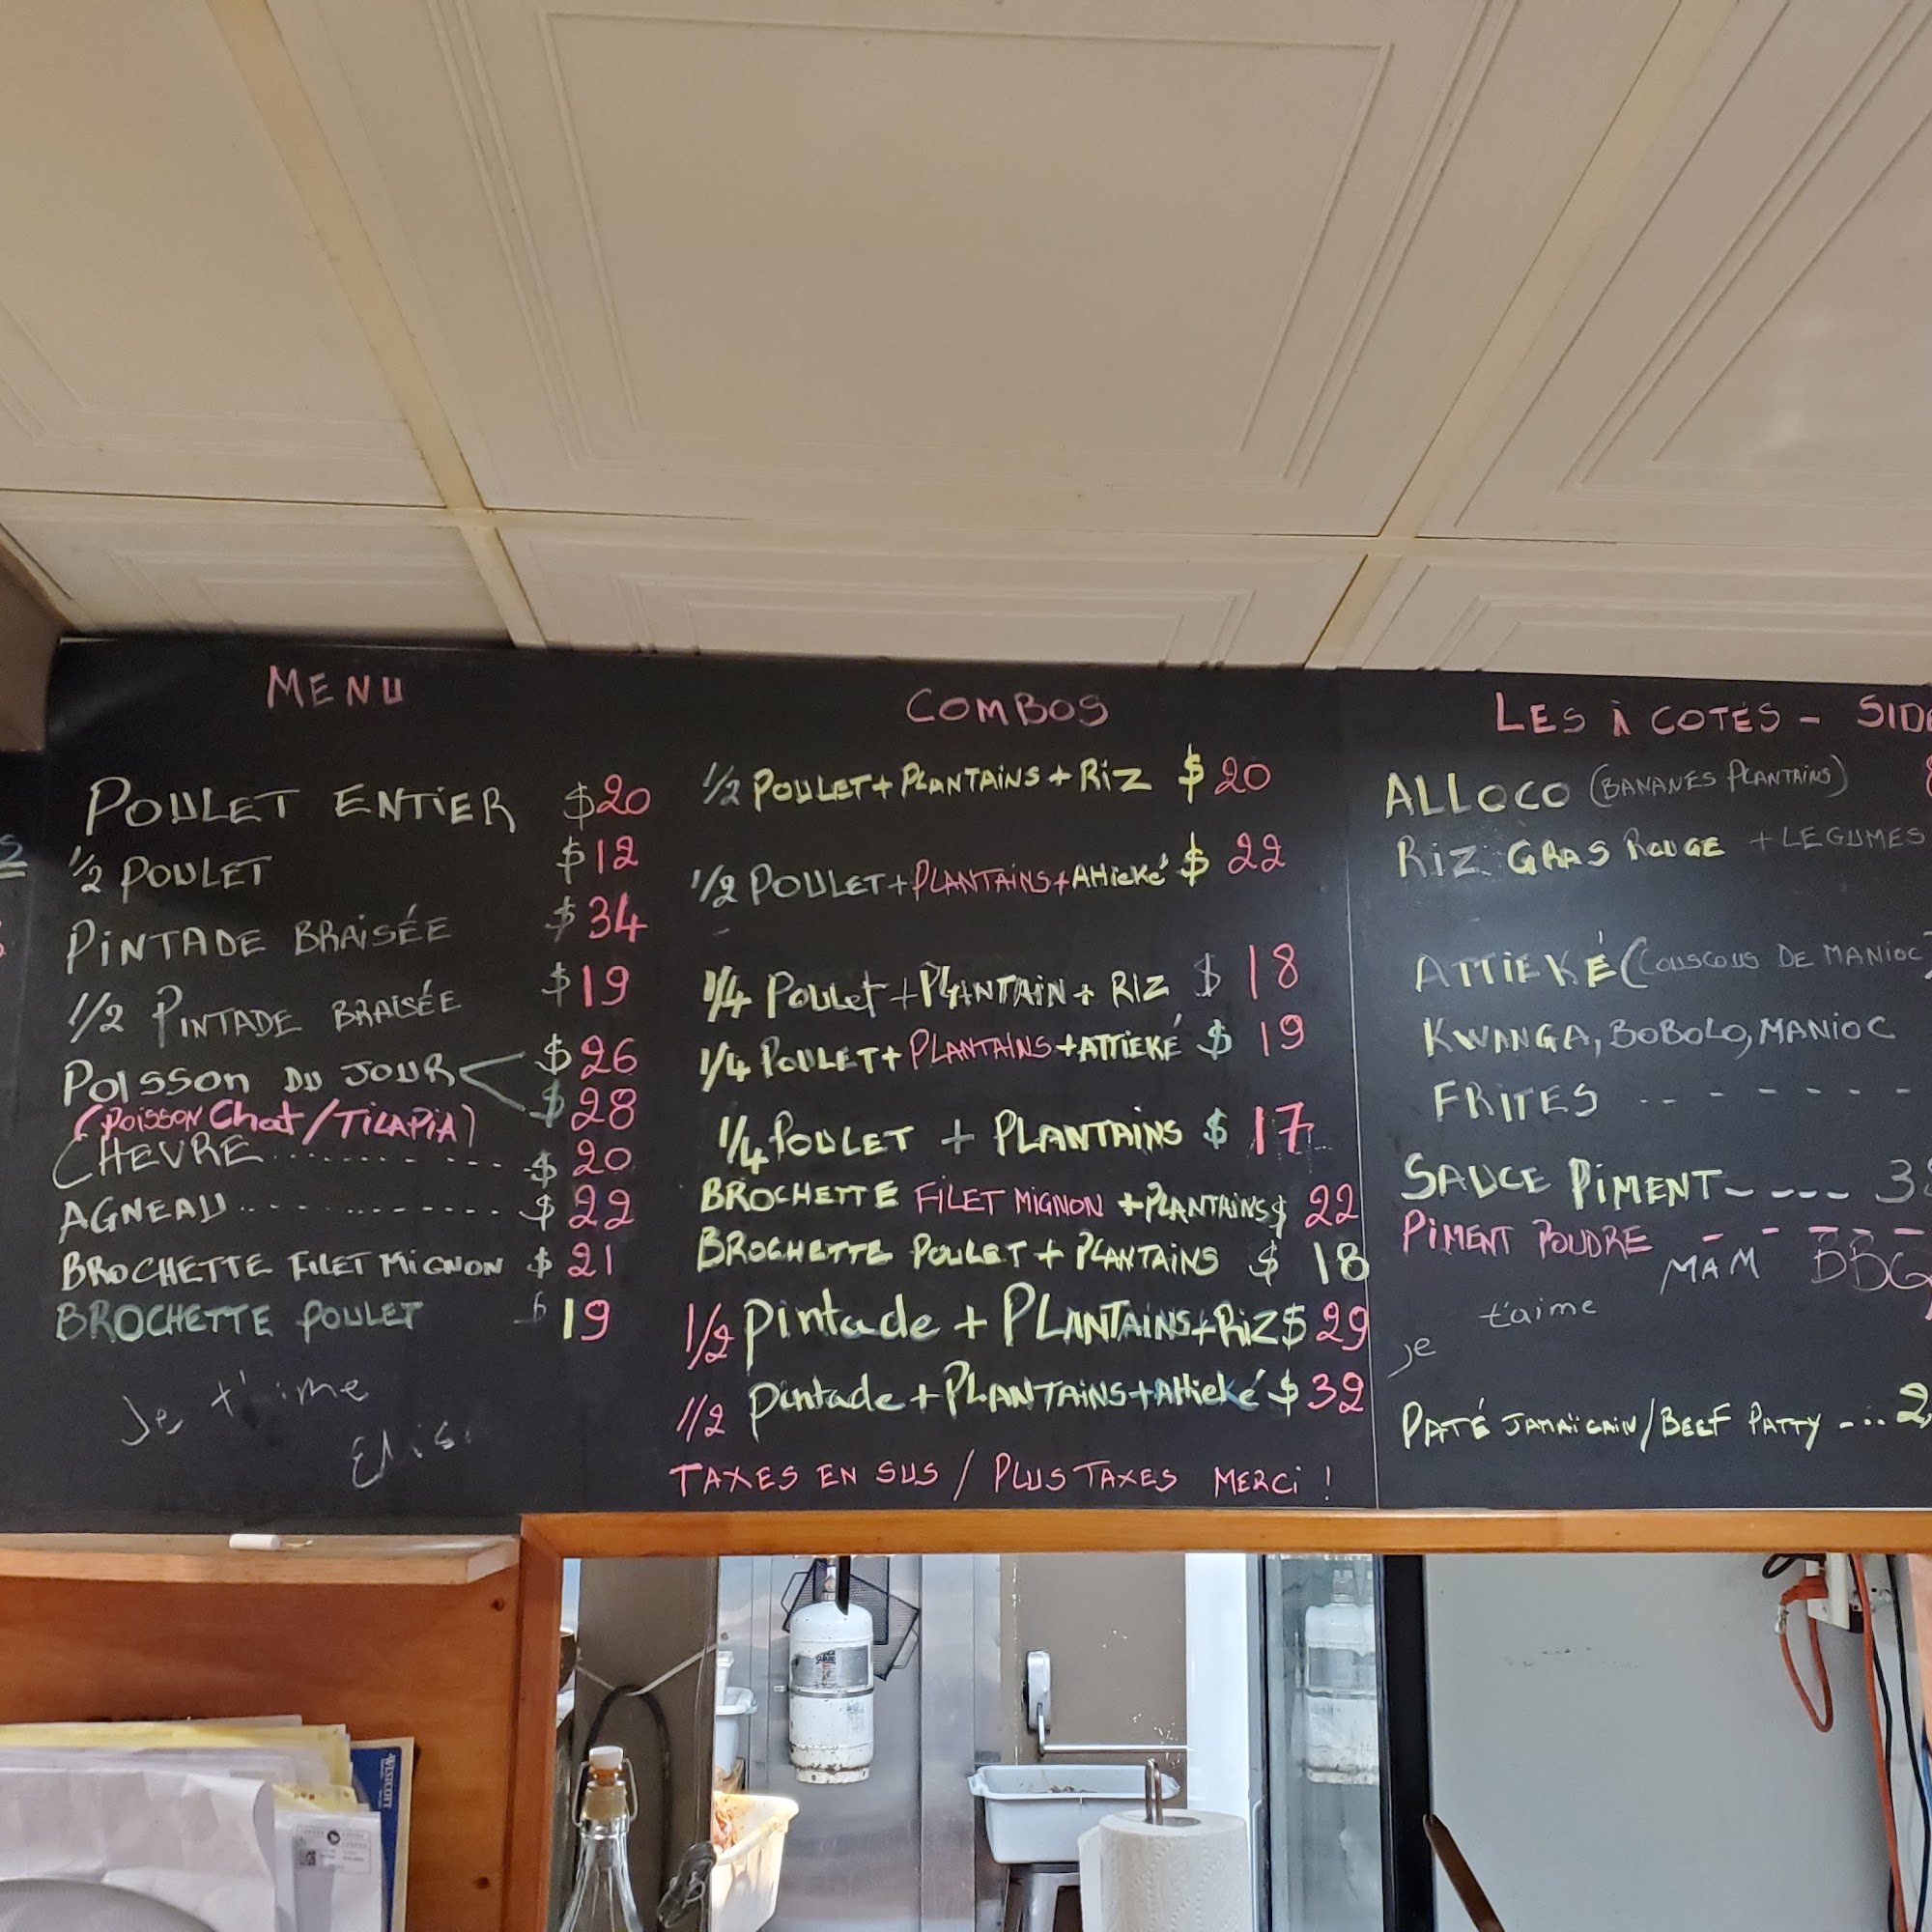 MENU
POULET ENTIER $20
1/2 POULET $12
PINTADE BRAISÉE $34
1/2 PINTADE BRAISÉE $19
POISSON DU JOUR $26
$28
(POISSON Chat/TILAPIA)
CHEVRE.............. $20
AGNEAU.............. $22
BROCHETTE FILET MIGNON $21
BROCHETTE POULET $19
Je t'ime
COMBOS
1/2 POULET + PLANTAINS + RIZ $20
1/2 POULET + PLANTAINS + Attieké $22
1/4 Poulet + PLANTAIN + RIZ $18
1/4 POULET + PLANTAINS + ATTIEKÉ $19
1/4 POULET + PLANTAINS $17
BROCHETTE FILET MIGNON + PLANTAINS $22
BROCHETTE POULET + PLANTAINS $18
1/2 Pintade + PLANTAINS + RIZ $29
1/2 Pintade + PLANTAINS + Attieké $32
TAXES EN SUS / PLUS TAXES MERCI !
LES À COTÉS -
ALLOCO (BANANES PLANTAINS)
RIZ GRAS ROUGE + LEGUMES
ATTIEKÉ (COUSCOUS DE MANIOC)
KWANGA, BOBOLO, MANIOC
FRITES -------
SAUCE PIMENT---- 3
PIMENT POUDRE - - - - -
MAM BBQ
je t'aime
PATÉ JAMAÏCAIN/BEEF PATTY -... 2